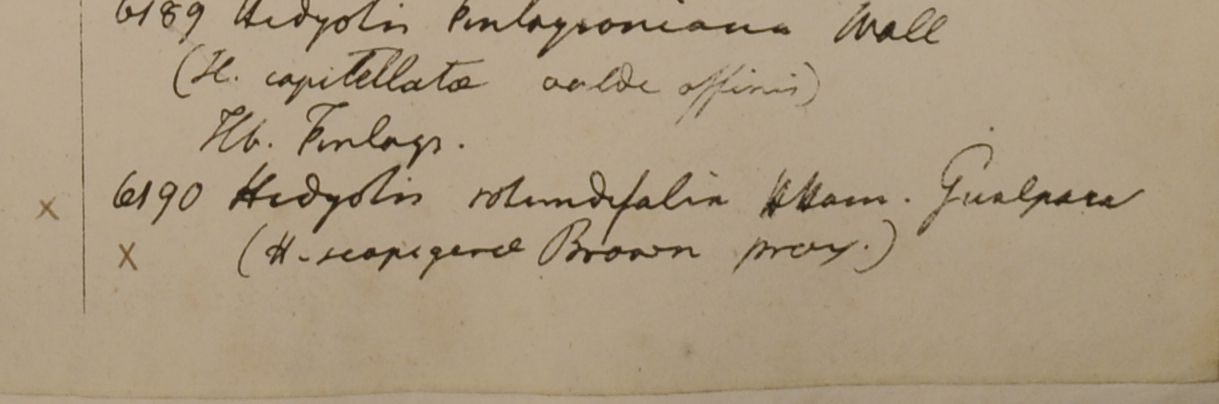 6189 Hedyotis Finlaysoniana Wall
(H. capitellatae valde affinis)
Hb. Finlays.
x 6190 Hedyotis rotundifolia HHam. Gualpara
x (H. scapigerae Brown prox.)